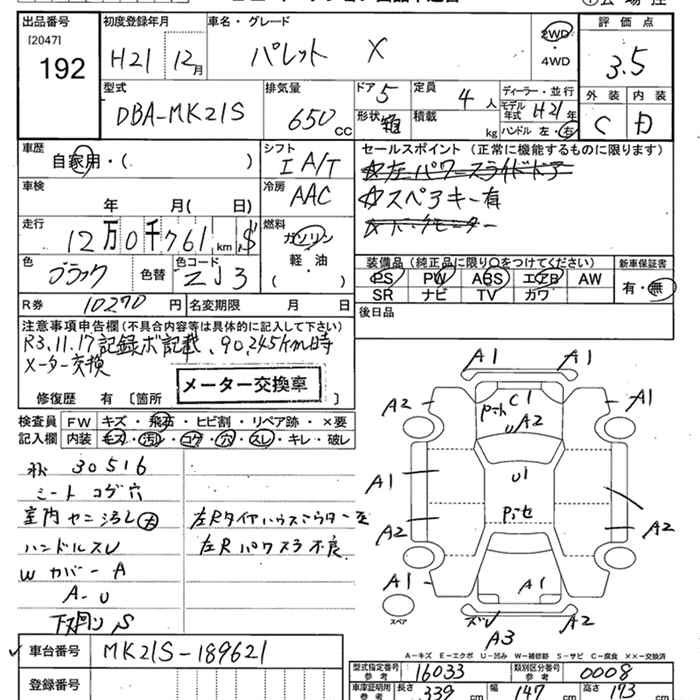 出品番号 初度登録年月 車名・グレード 評価点
[2047]
192
H21 12月 パレット X 2WD・4WD 3.5
型式 排気量 ドア 5 定員 4人 ディーラー・並行 外装 内装
DBA-MK21S 650cc 形状 箱 積載 kg モデル年式 H21年 C D
ハンドル 左・右
車歴 シフト セールスポイント (正常に機能するものに限ります)
自家用・( ) I A/T ☆左パワースライドドア
車検 冷房 ☆スペアキー有
年 月( 日) AAC
走行 燃料
12万0千761km $ ガソリン
軽・油
( )
装備品(純正品に限り○をつけてください) 新車保証書
PS PW ABS エアB AW 有・無
SR ナビ TV カワ
色 ブラック 色替 色コード ZJ3
後日品
R券 10270円 名変期限 月 日
注意事項申告欄(不具合内容等は具体的に記入して下さい)
R3.11.17記録ボ記載、90,245km時
メーター交換
メーター交換車
修復歴 有 〔箇所 〕
検査員記入欄 FW キズ・飛石・ヒビ割・リペア跡・×要
内装 キズ・汚れ・コゲ・穴・スレ・キレ・破レ
30516
シート コゲ穴
室内ヤニ汚レ大
左Rタイヤハウス
ハンドルスレ
左Rパワスラ不良
Wカバー A
A-U
下廻り S
A1 A1
A2 C1 A1
A2
A1 U1
A2 A2
A1 A1
スペア A3 A2
A-キズ E-エクボ U-凹み W-補修跡 S-サビ C-腐食 XX-交換済
車台番号 MK21S-189621
登録番号
型式指定番号 参考 16033 類別区分番号 参考 0008
車庫証明用 参考 長さ 339cm 幅 147cm 高さ 173cm